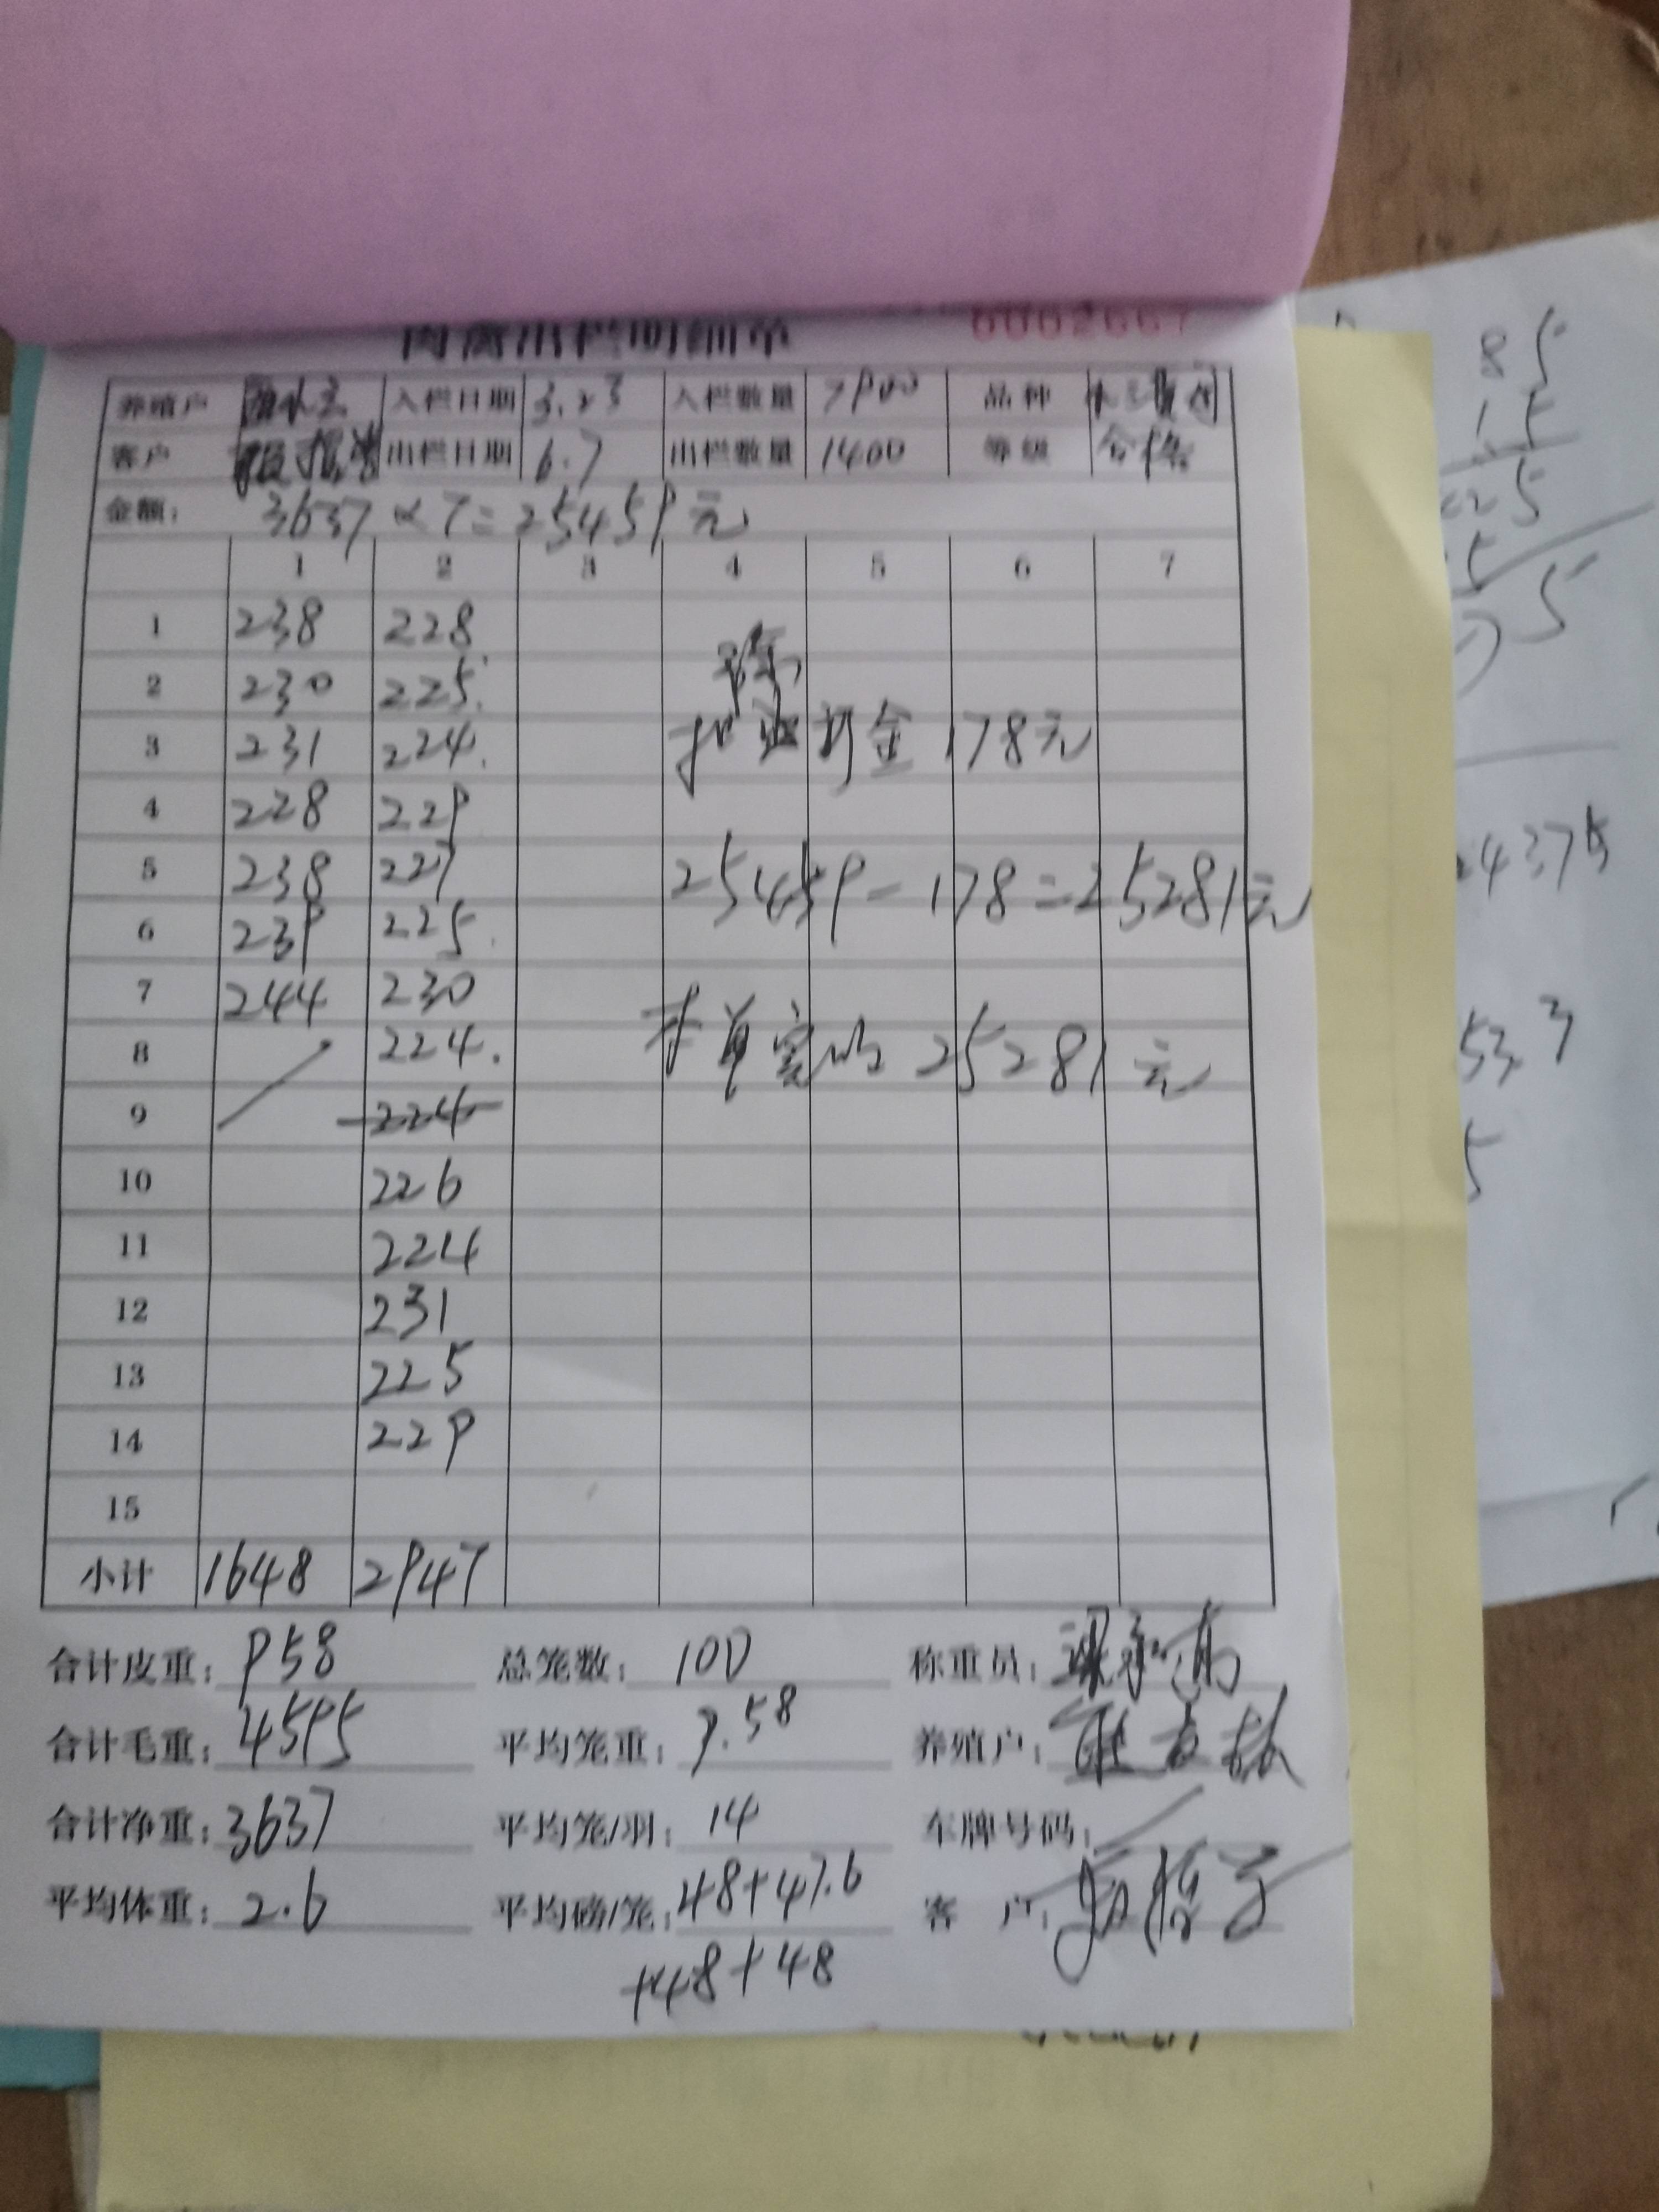 肉禽出栏明细单 0002667
养殖户 入栏日期 3.23 入栏数量 7900 品种
客户 出栏日期 6.7 出栏数量 1400 等级 合格
金额: 3637×7=25459元
1 2 3 4 5 6 7
1 238 228
2 230 225
3 231 224 金 178元
4 228 229
5 238 227 25459-178=25281元
6 239 225
7 244 230
8 224 本单实收 25281元
9 224
10 226
11 224
12 231
13 225
14 229
15
小计 1648 2947
合计皮重: 958 总笼数: 100 称重员:
合计毛重: 4595 平均笼重: 9.58 养殖户:
合计净重: 3637 平均笼/羽: 14 车牌号码:
平均体重: 2.6 平均磅/笼: 48+47.6 客户:
+48+48
85
15
5
24375
53.3
5